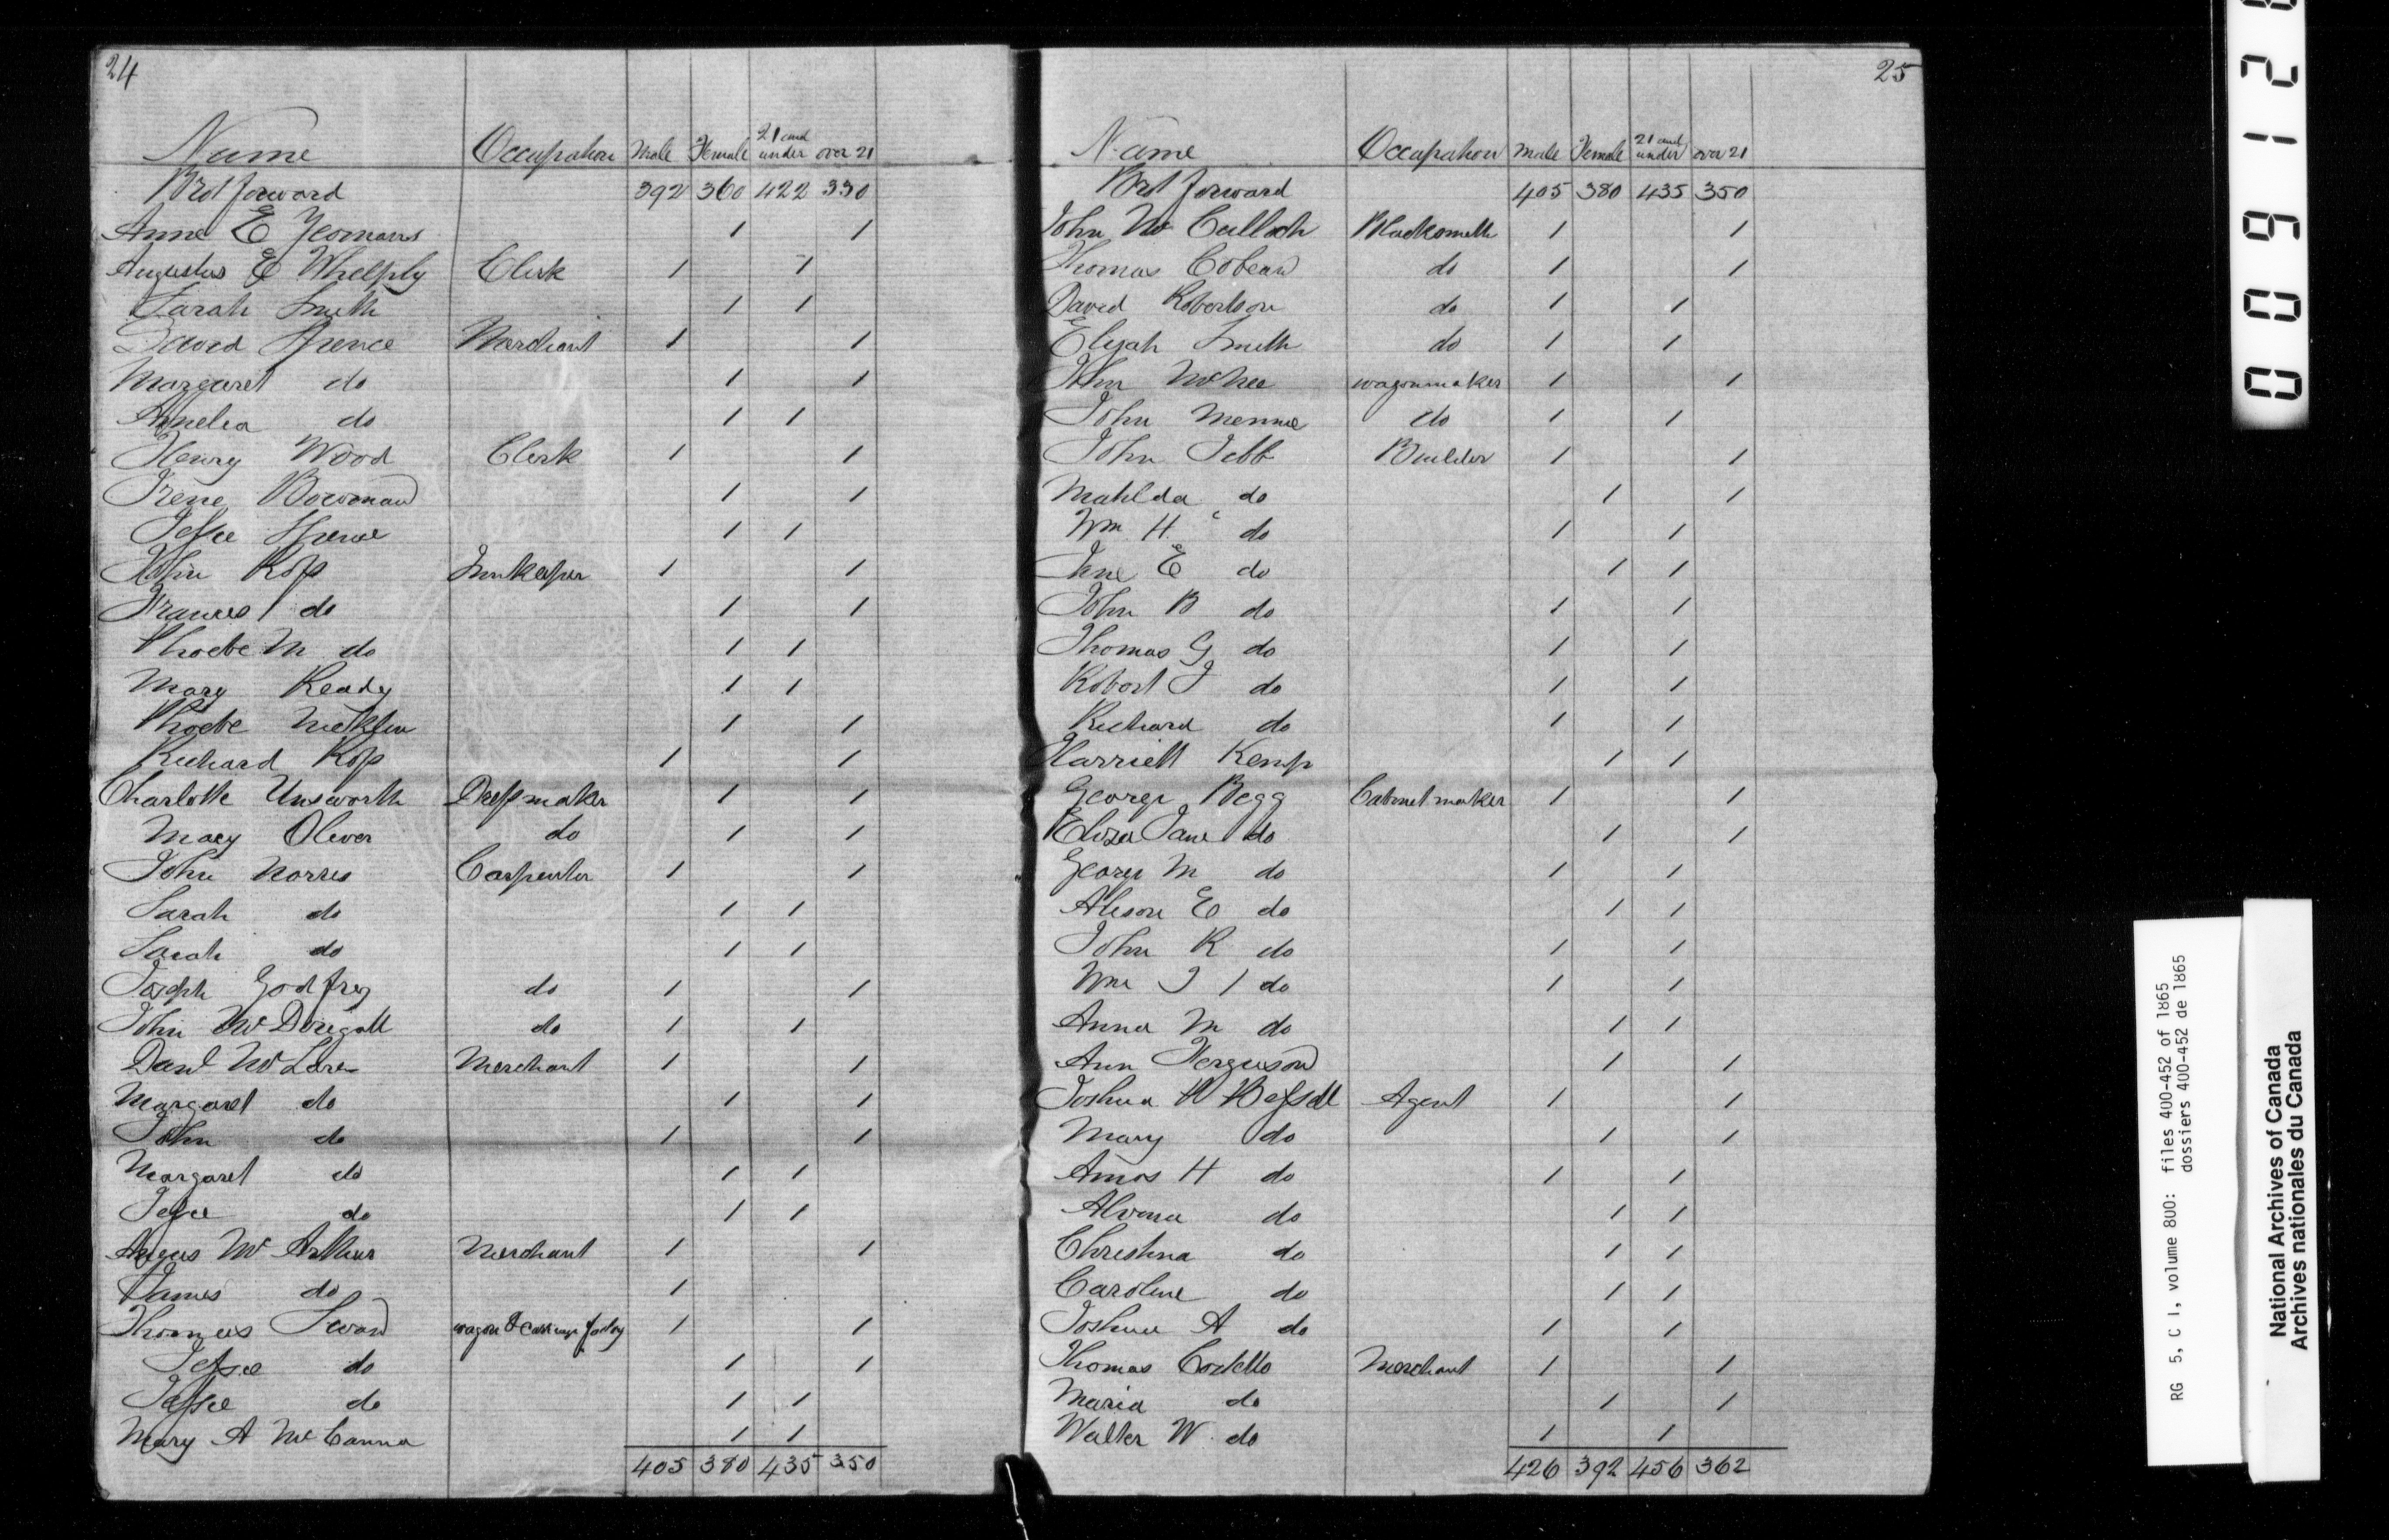 24
Name Occupation Male Female 21 and under over 21
Brot forward 392 360 422 330
Anne E Yeomans 1 1
Augustus E Whelply Clerk 1 1
Sarah Smith 1 1
David Spence Merchant 1 1
Margaret do 1 1
Amelia do 1 1
Henry Wood Clerk 1 1
Irene Bowman 1 1
Jessie Spence 1 1
John Kolp Innkeeper 1 1
Frances do 1 1
Phoebe M do 1 1
Mary Ready 1 1
Phoebe 1 1
Richard Kolp 1 1
Charlotte Unsworth Dressmaker 1 1
Mary Oliver do 1 1
John Norris Carpenter 1 1
Sarah do 1 1
Sarah do 1 1
Joseph Godfrey do 1 1
John McDougall do 1 1
Danl McLaren Merchant 1 1
Margaret do 1 1
John do 1 1
Margaret do 1 1
Jessie do 1 1
Angus McArthur Merchant 1 1
James do 1
Thomas wagon & carriage factory 1 1
Jessie do 1 1
Jessie do 1 1
Mary A McCanna 1 1
405 380 435 350
25
Name Occupation Male Female 21 and under over 21
Brot forward 405 380 435 350
John McCulloch Blacksmith 1 1
Thomas Cobean do 1 1
David Robertson do 1 1
Elijah Smith do 1 1
John McNee wagonmaker 1 1
John do 1 1
John Jebb Builder 1 1
Matilda do 1 1
Wm H do 1 1
Jane E do 1 1
John B do 1 1
Thomas G do 1 1
Robert J do 1 1
Richard do 1 1
Harriett Kemp 1 1
George Begg Cabinet maker 1 1
Eliza Jane do 1 1
George M do 1 1
Alison E do 1 1
John R do 1 1
Wm J do 1 1
Anna M do 1 1
Ann Ferguson 1 1
Joshua W Bessell Agent 1 1
Mary do 1 1
Amos H do 1 1
Alvona do 1 1
Christina do 1 1
Caroline do 1 1
Joshua A do 1 1
Thomas Costello Merchant 1 1
Maria do 1 1
Walter W do 1 1
426 392 456 362
RG 5, C 1, volume 800: files 400-452 of 1865
dossiers 400-452 de 1865
National Archives of Canada
Archives nationales du Canada